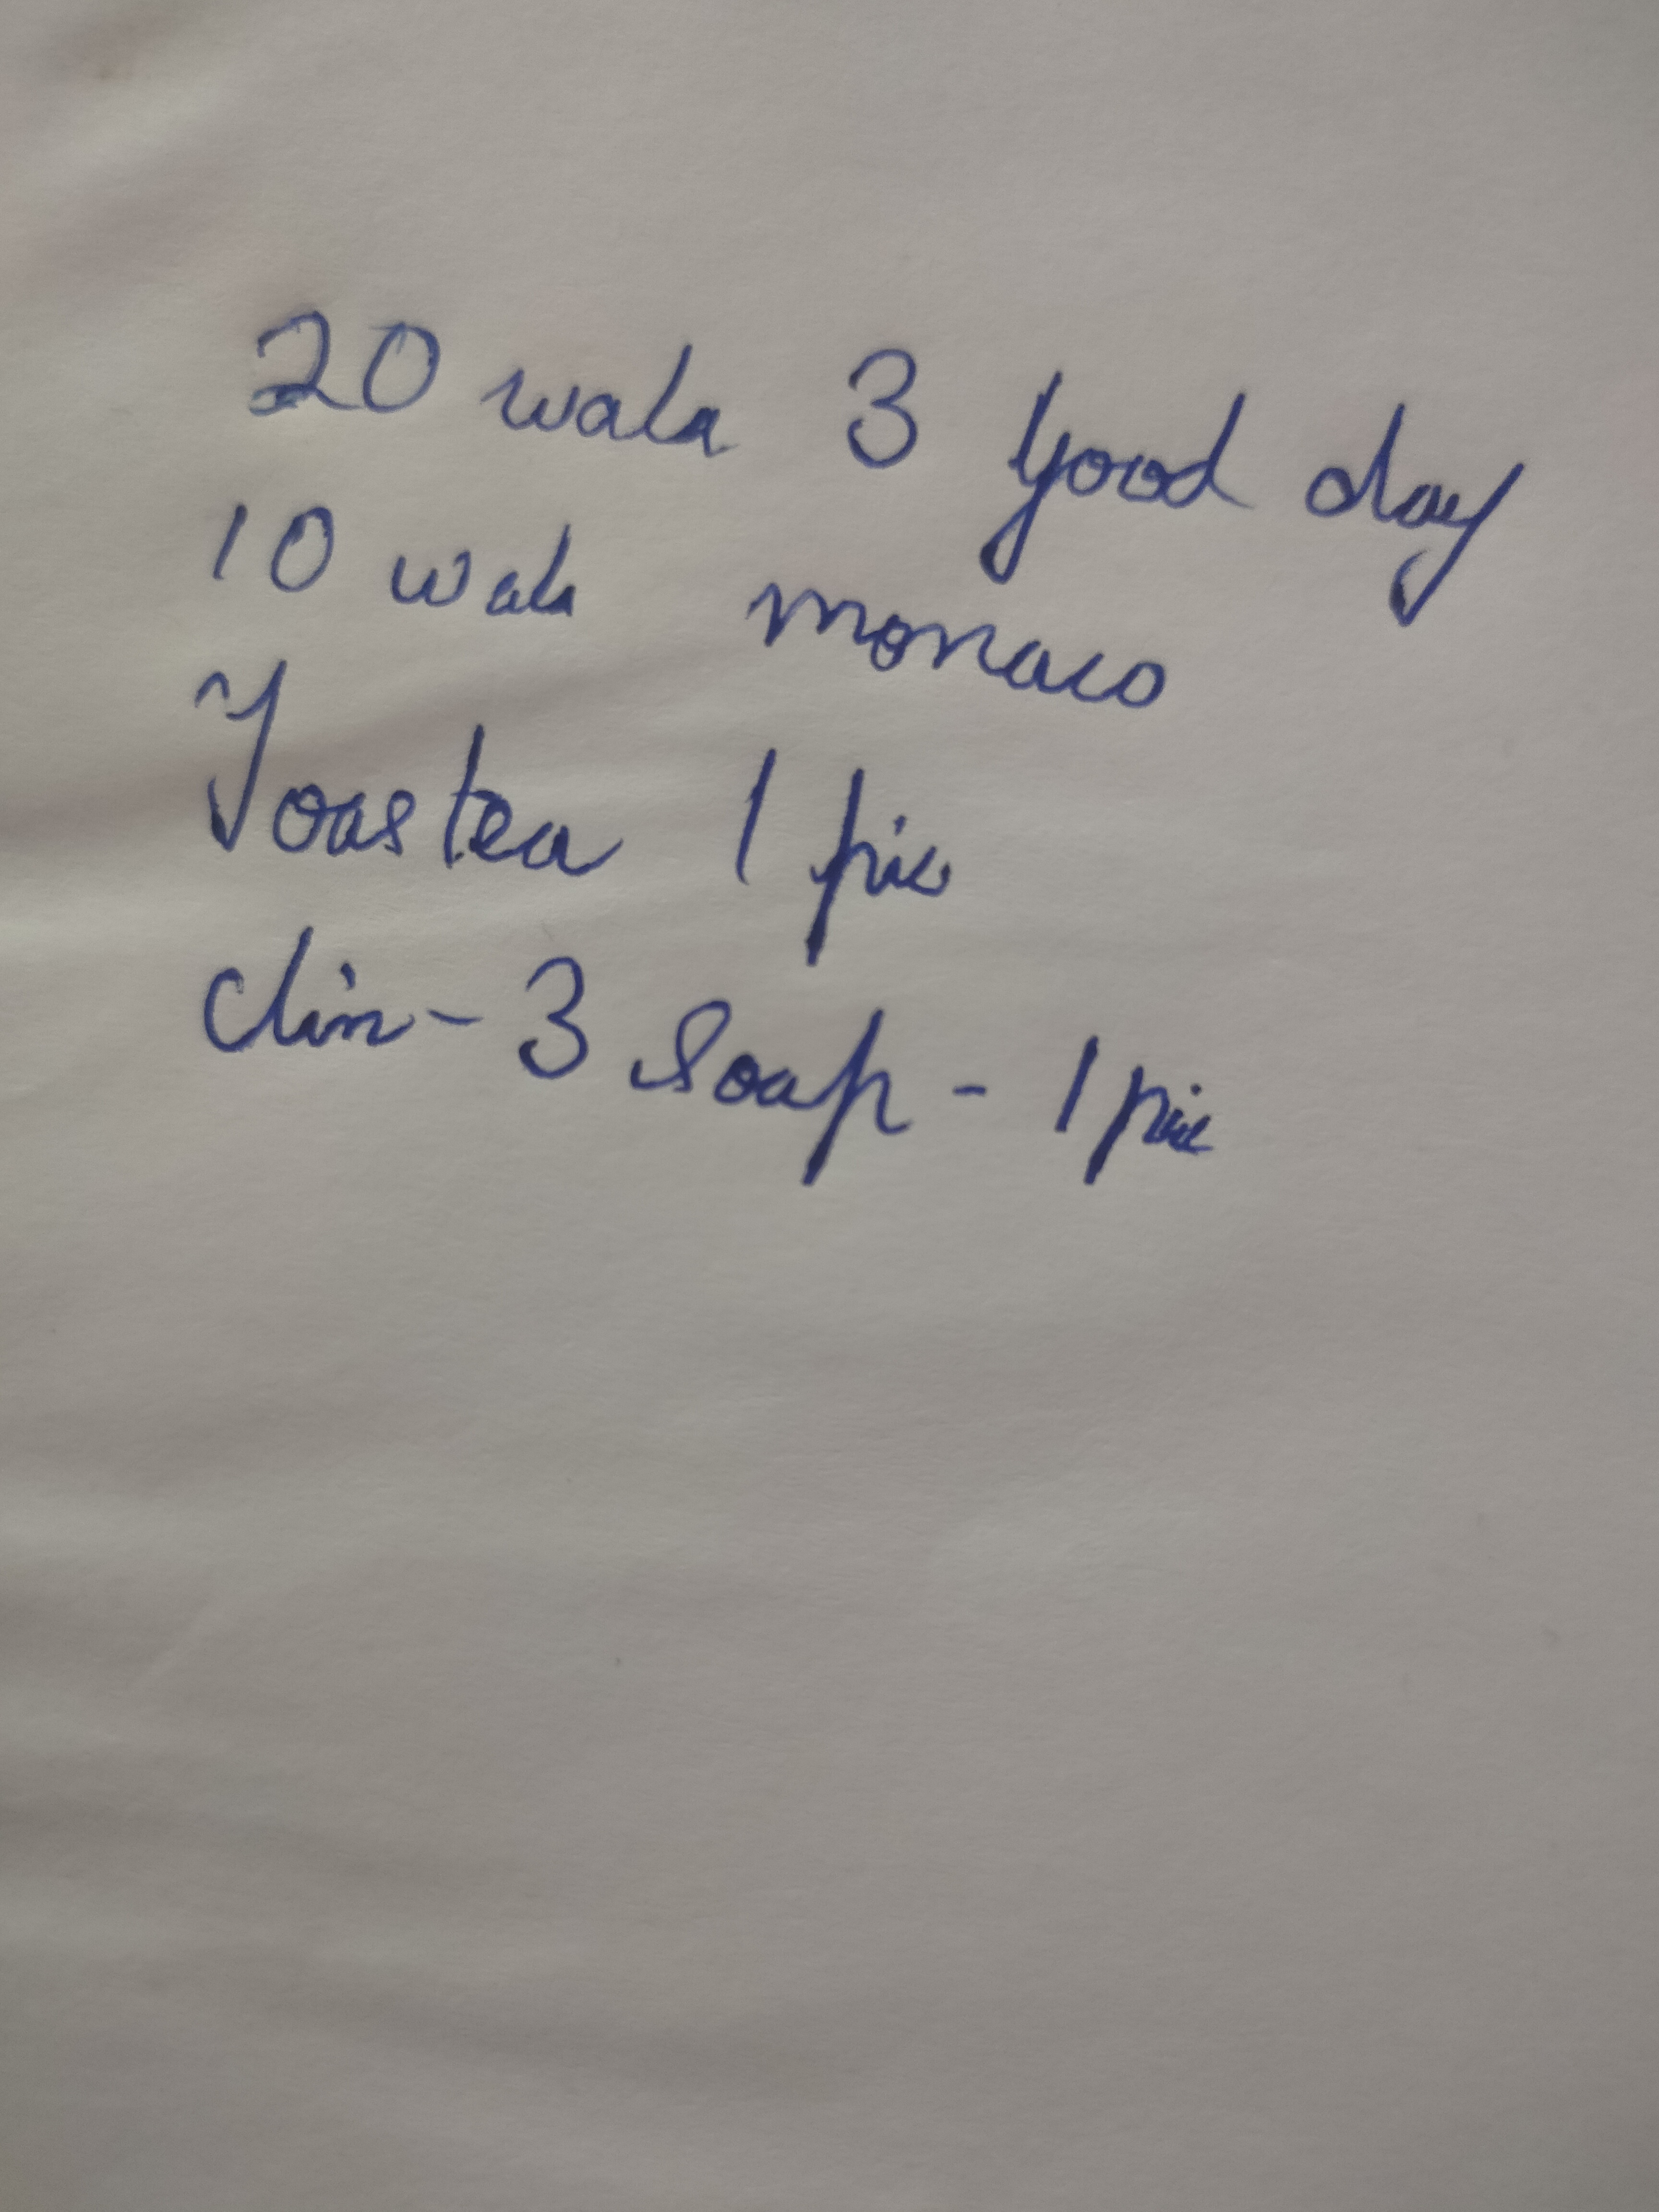 20 wala 3 good day
10 wala monaco
Toastea 1 pic
clin-3 soap - 1 pic